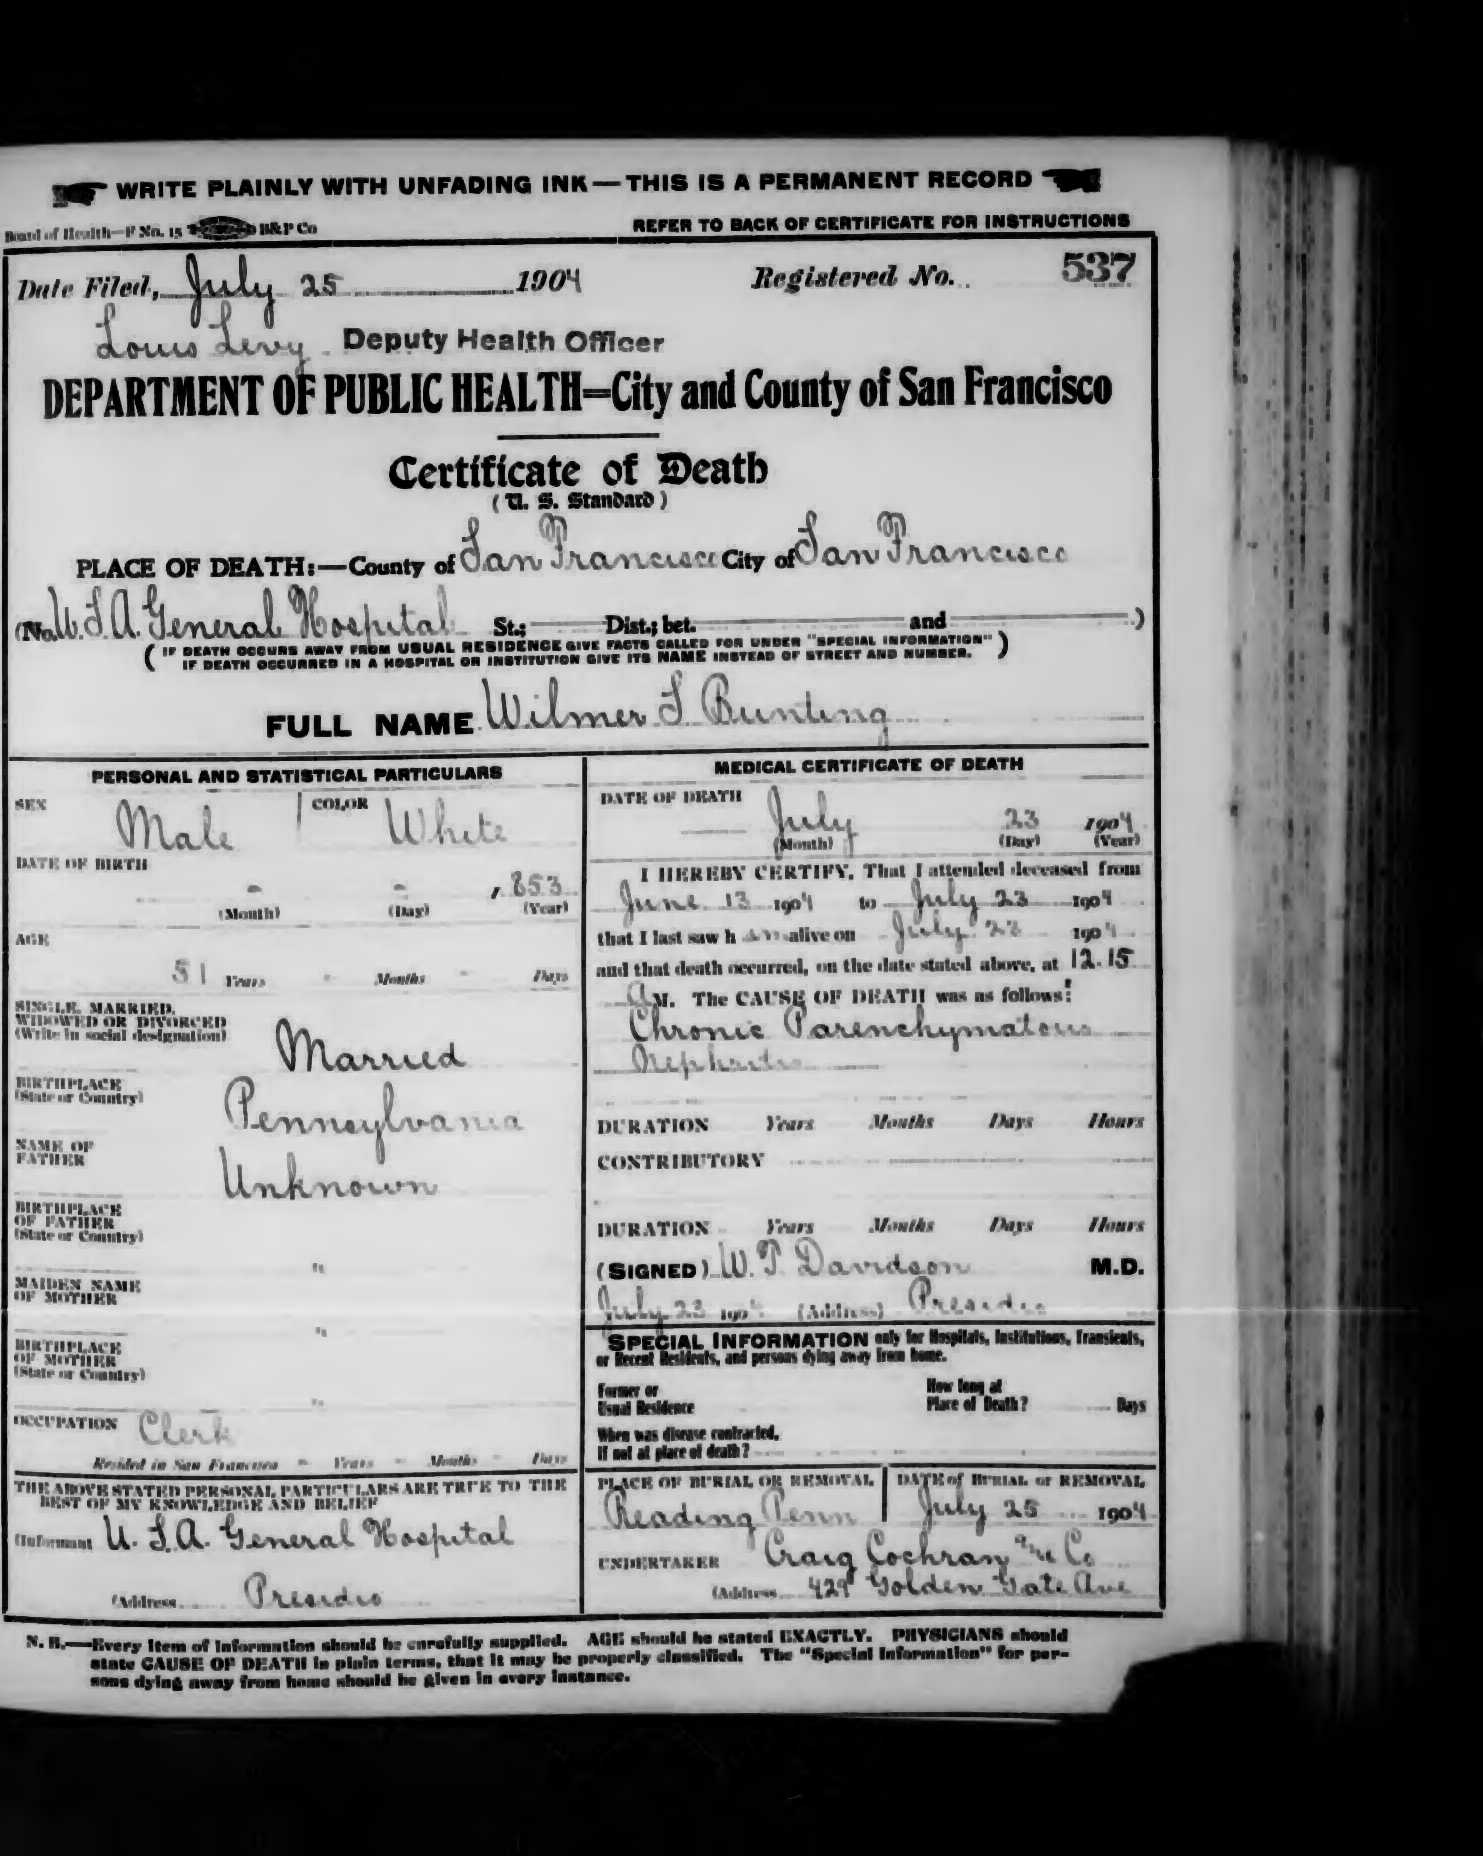 WRITE PLAINLY WITH UNFADING INK—THIS IS A PERMANENT RECORD
Board of Health—F No. 15 B&P Co REFER TO BACK OF CERTIFICATE FOR INSTRUCTIONS
Date Filed, July 25 1904 Registered No. 537
Louis Levy Deputy Health Officer
DEPARTMENT OF PUBLIC HEALTH=City and County of San Francisco
Certificate of Death
(U. S. Standard)
PLACE OF DEATH:—County of San Francisco City of San Francisco
(No. U.S.A. General Hospital St.; Dist.; bet. and )
(IF DEATH OCCURS AWAY FROM USUAL RESIDENCE GIVE FACTS CALLED FOR UNDER "SPECIAL INFORMATION"
IF DEATH OCCURRED IN A HOSPITAL OR INSTITUTION GIVE ITS NAME INSTEAD OF STREET AND NUMBER.)
FULL NAME Wilmer S Bunting
PERSONAL AND STATISTICAL PARTICULARS
SEX Male COLOR White
DATE OF BIRTH
- - 1853
(Month) (Day) (Year)
AGE
51 Years - Months - Days
SINGLE, MARRIED,
WIDOWED OR DIVORCED
(Write in social designation)
Married
BIRTHPLACE
(State or Country)
Pennsylvania
NAME OF
FATHER
Unknown
BIRTHPLACE
OF FATHER
(State or Country)
"
MAIDEN NAME
OF MOTHER
"
BIRTHPLACE
OF MOTHER
(State or Country)
"
OCCUPATION Clerk
Resided in San Francisco - Years - Months - Days
THE ABOVE STATED PERSONAL PARTICULARS ARE TRUE TO THE
BEST OF MY KNOWLEDGE AND BELIEF
(Informant U. S. A. General Hospital
(Address Presidio
MEDICAL CERTIFICATE OF DEATH
DATE OF DEATH
July 23 1904
(Month) (Day) (Year)
I HEREBY CERTIFY, That I attended deceased from
June 13 1904 to July 23 1904
that I last saw h im alive on July 22 1904
and that death occurred, on the date stated above, at 12.15
A M. The CAUSE OF DEATH was as follows:
Chronic Parenchymatous
Nephritis
DURATION Years Months Days Hours
CONTRIBUTORY
DURATION Years Months Days Hours
(SIGNED) W. T. Davidson M.D.
July 23 1904 (Address) Presidio
SPECIAL INFORMATION only for Hospitals, Institutions, Transients,
or Recent Residents, and persons dying away from home.
Former or
Usual Residence
How long at
Place of Death? Days
When was disease contracted,
If not at place of death?
PLACE OF BURIAL OR REMOVAL DATE of BURIAL or REMOVAL
Reading Penn July 25 1904
UNDERTAKER Craig Cochran and Co
(Address 429 Golden Gate Ave
N. B.—Every item of information should be carefully supplied. AGE should be stated EXACTLY. PHYSICIANS should
state CAUSE OF DEATH in plain terms, that it may be properly classified. The "Special Information" for per-
sons dying away from home should be given in every instance.